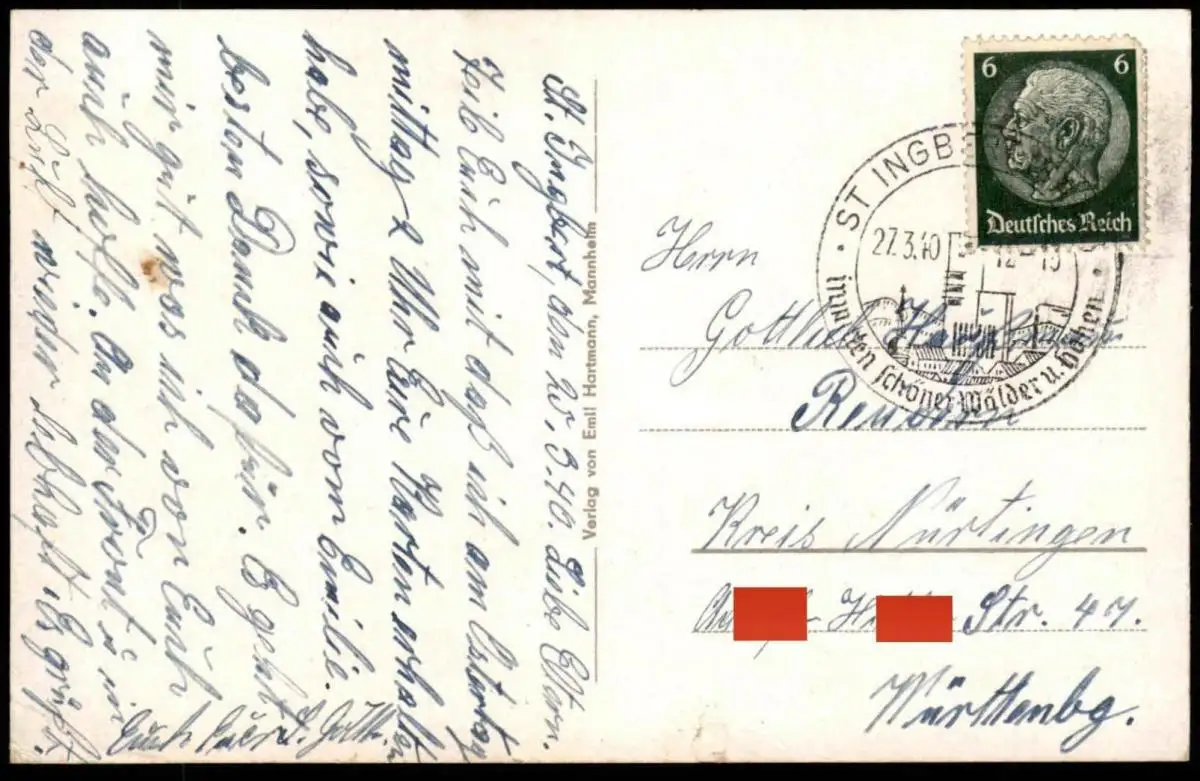 St. Ingbert, den 25.3.40. Liebe Eltern.
Teile Euch mit daß ich am Ostertag
mittag 2 Uhr Eure Karten erhalten
habe, sowie auch vom Emilie.
besten Dank dafür. Es geht
mir gut was ich von Euch
auch hoffe. An der Front u. in
der Luft wieder lebhaft. Es grüßt
Euch Euer
Verlag von Emil Hartmann, Mannheim
6 6
Deutsches Reich
ST INGBE
27.3.40
12-13
inmitten schöner Wälder u. Höhen
Herrn
Gottlieb
Kreis Nürtingen
Str. 47.
Württenbg.